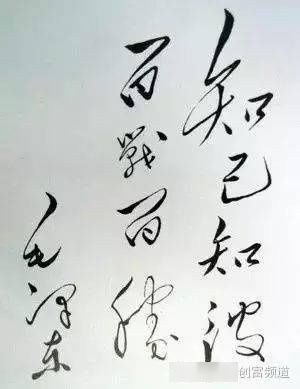 知己知彼
百戰百勝
毛泽东
创富频道